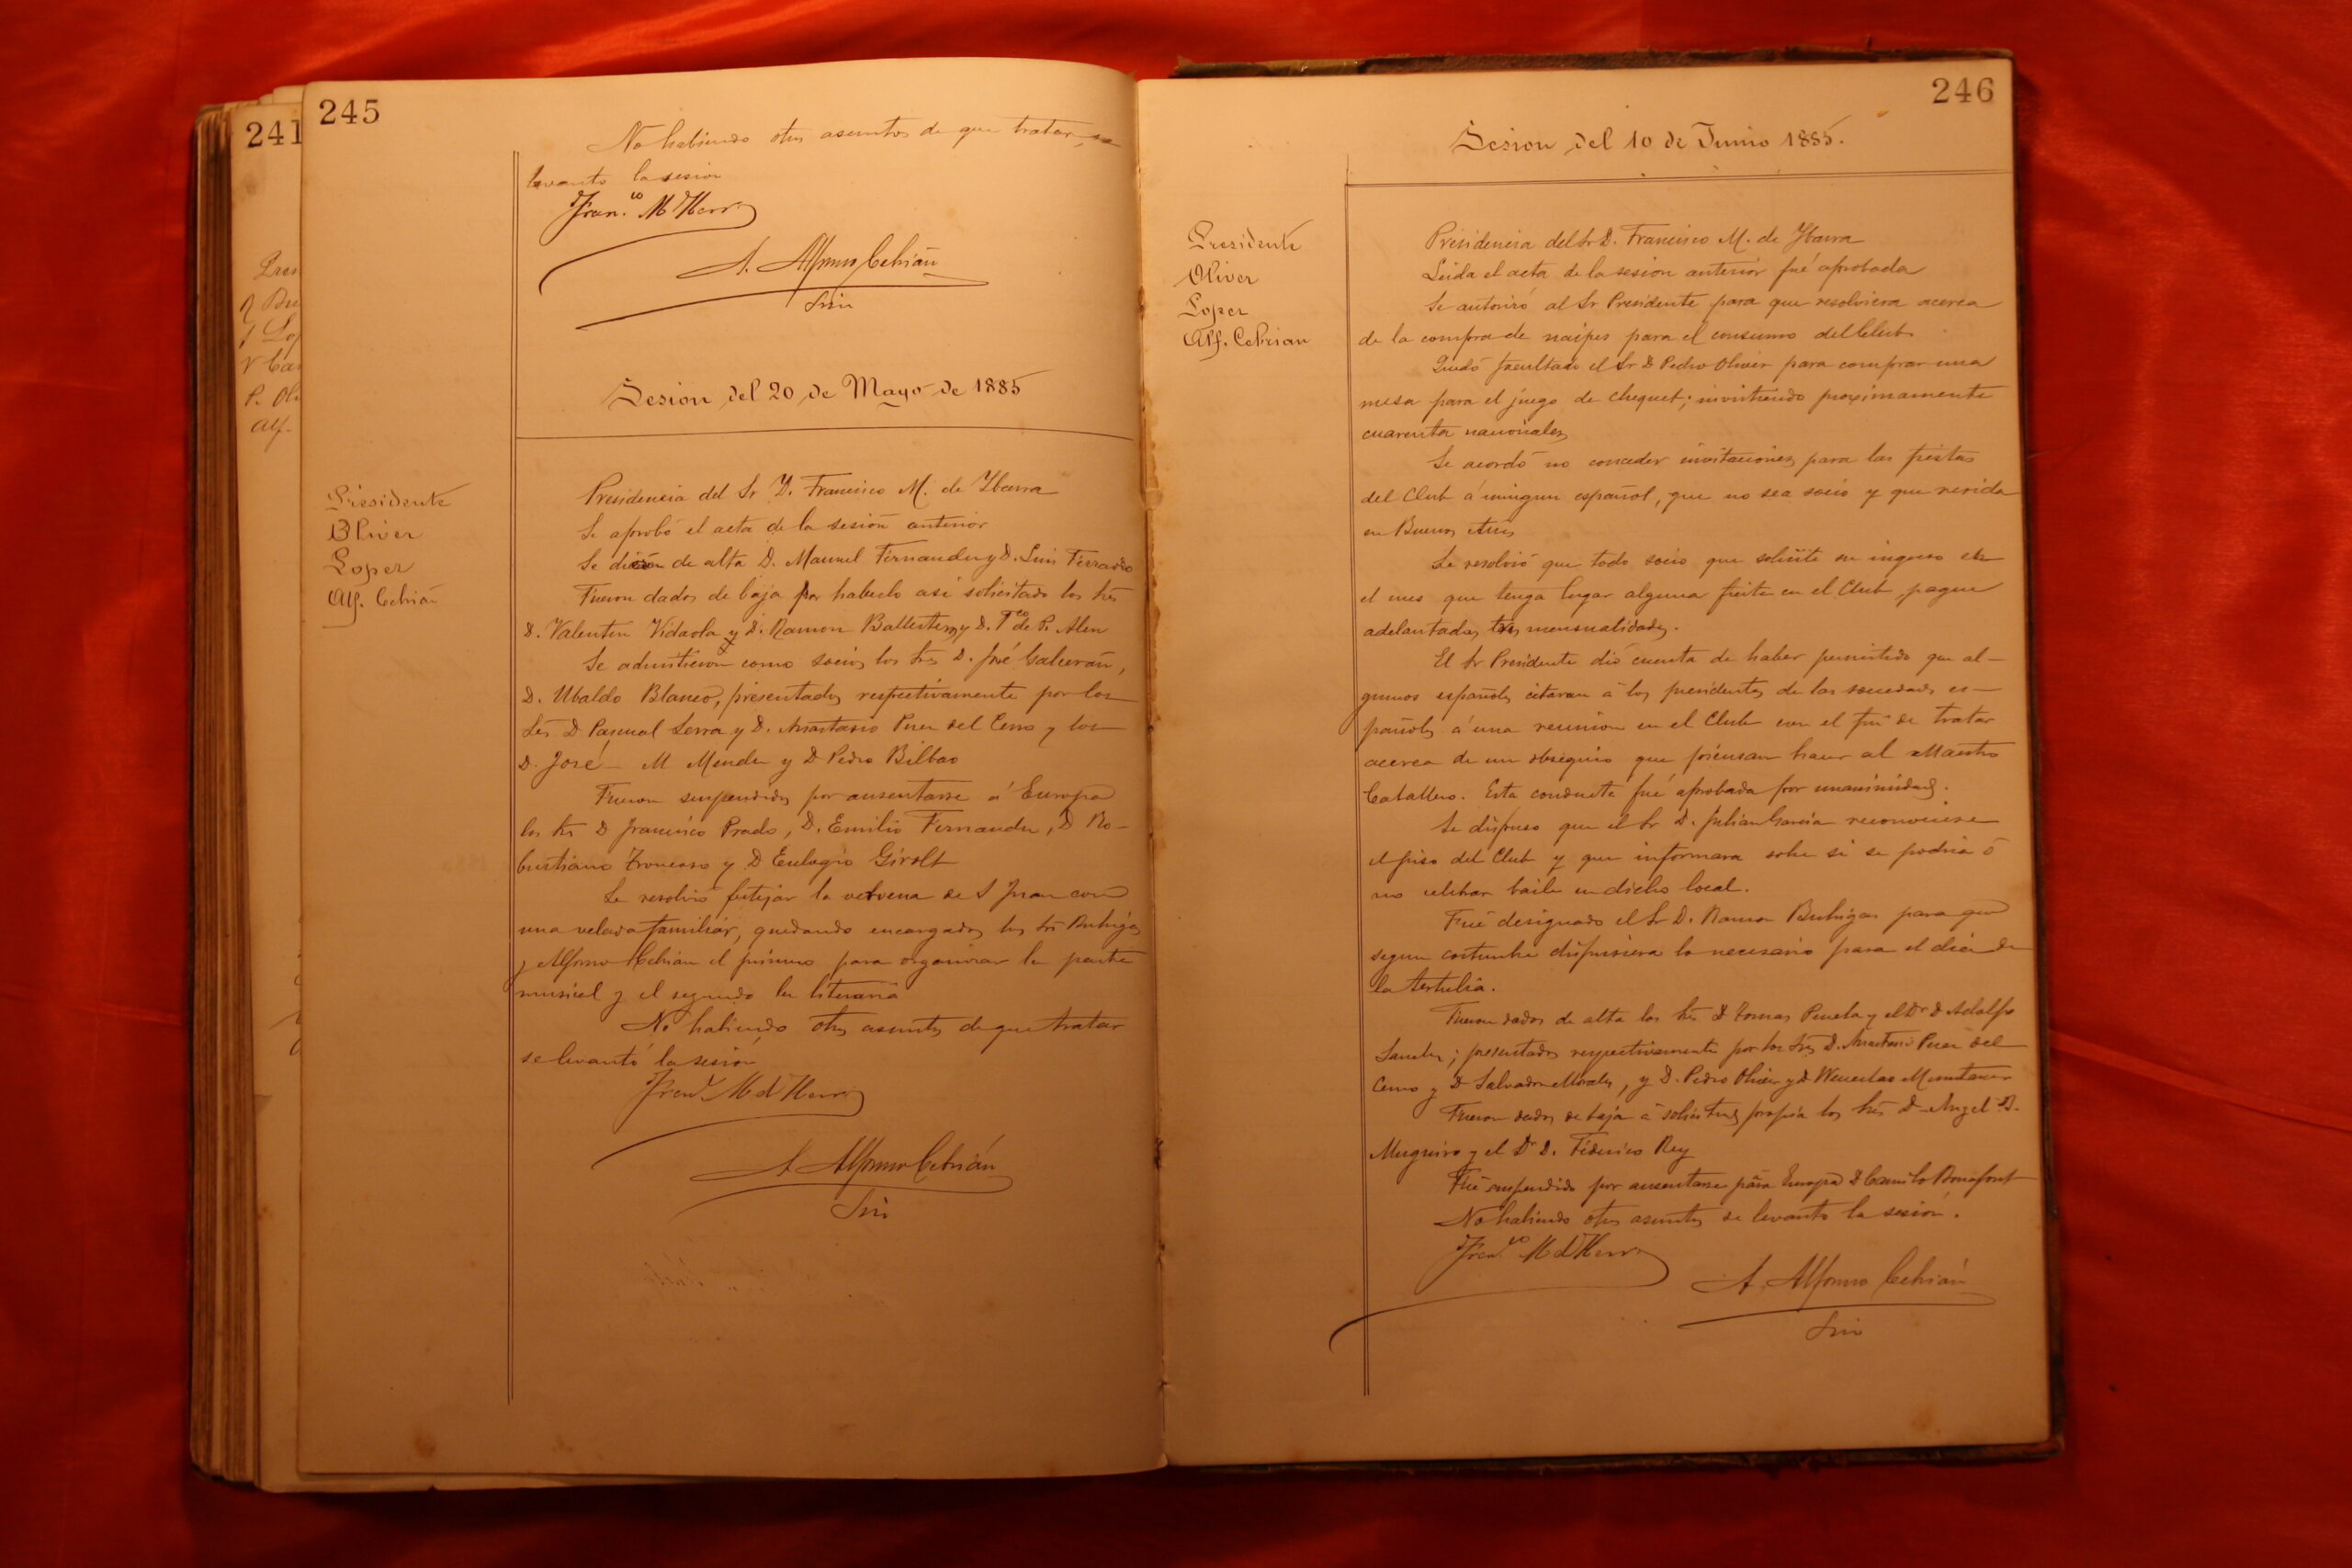 241
Pres
P. Oli
Alf.
245
No habiendo otros asuntos de que tratar, se
levanto la sesion
Fran.co M de Ybarra
A. Alfonso Cebrián
Srio
Sesion del 20 de Mayo de 1885
Presidente
Oliver
Lopez
Alf. Cebrian
Presidencia del Sr D. Francisco M. de Ybarra
Se aprobó el acta de la sesión anterior
Se dieron de alta D. Manuel Fernandez y D. Luis Ferradas
Fueron dados de baja por haberlo asi solicitado los Srs
D. Valentin Vidaola y D. Ramon Ballesteros y D. Fco de P. Alen
Se admitieron como socios los Srs D. José Galcerán,
D. Ubaldo Blanco, presentados respectivamente por los
Srs D Pascual Serra y D. Anastasio Perez del Cerro y los
D. José M Mendez y D Pedro Bilbao
Fueron suspendidos por ausentarse á Europa
los Srs D Francisco Prado, D. Emilio Fernandez, D Ro-
bustiano Troncoso y D Eulogio Giralt
Se resolvió festejar la verbena de S Juan con
una velada familiar, quedando encargados los Srs Buhigas
y Alfonso Cebrian el primero para organizar la parte
musical y el segundo la literaria
No habiendo otros asuntos de que tratar
se levantó la sesión
Fran.co M de Ybarra
A Alfonso Cebrián
Srio
246
Sesion del 10 de Junio 1885.
Presidente
Oliver
Lopez
Alf. Cebrian
Presidencia del Sr D. Francisco M. de Ybarra
Leida el acta de la sesion anterior fué aprobada
Se autorizó al Sr Presidente para que resolviera acerca
de la compra de naipes para el consumo del Club.
Quedó facultado el Sr D Pedro Oliver para comprar una
mesa para el juego de chequet; invirtiendo proximamente
cuarenta nacionales
Se acordó no conceder invitaciones para las fiestas
del Club á ningun español, que no sea socio y que resida
en Buenos Aires
Se resolvió que todo socio que solicite su ingreso en
el mes que tenga lugar alguna fiesta en el Club, pague
adelantadas tres mensualidades.
El Sr Presidente dió cuenta de haber permitido que al-
gunos españoles citaran á los presidentes de las sociedades es-
pañolas á una reunion en el Club con el fin de tratar
acerca de un obsequio que piensan hacer al Maestro
Caballero. Esta conducta fué aprobada por unanimidad.
Se dispuso que el Sr D. Julian Garcia reconociese
el piso del Club y que informara sobre si se podria ó
no celebrar baile en dicho local.
Fué designado el Sr D. Ramon Buhigas para que
segun costumbre dispusiera lo necesario para el dia de
la tertulia.
Fueron dados de alta los Srs D Tomas Penela y el Dr D Adolfo
Sanchez; presentados respectivamente por los Srs D. Anastasio Perez del
Cerro y D Salvador Morales, y D. Pedro Oliver y D Wenceslao Muntaner
Fueron dados de baja á solicitud propia los Srs D Angel D.
Muguiro y el Dr D. Federico Rey
Fué suspendido por ausentarse para Europa D Camilo Bonafont
No habiendo otros asuntos se levantó la sesión.
Fran.co M de Ybarra
A. Alfonso Cebrián
Srio